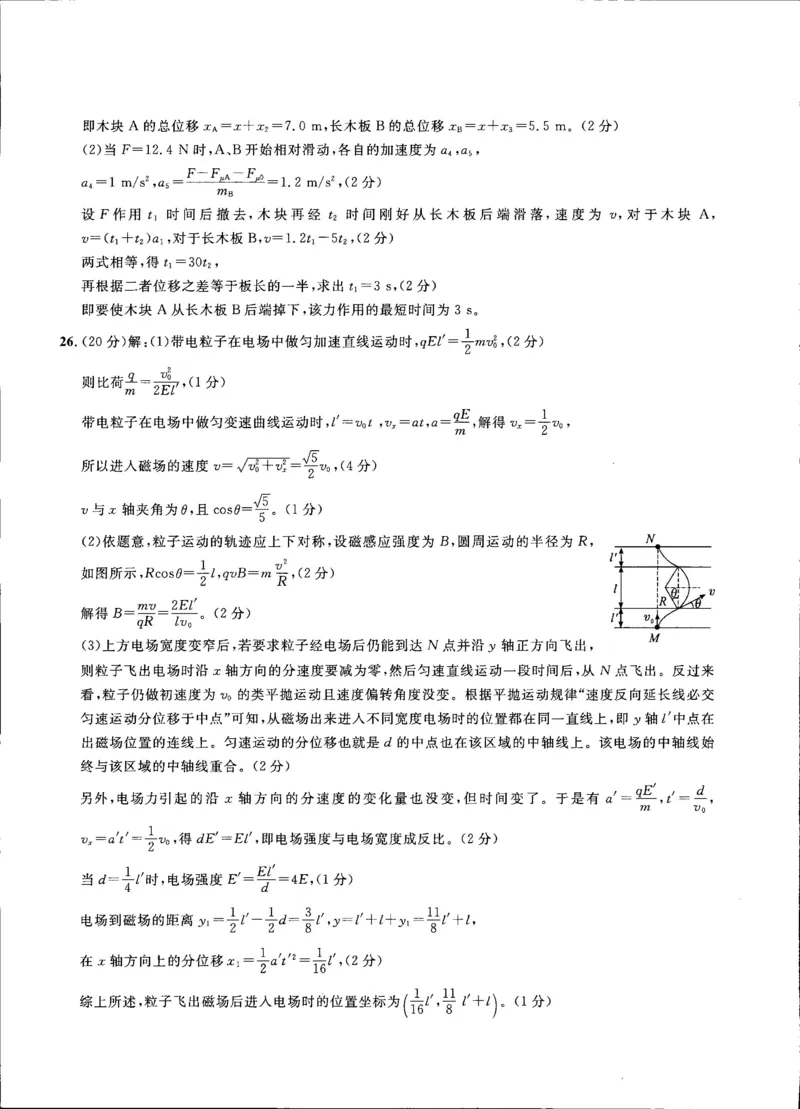 即木块 A 的总位移 x_A=x+x_2=7.0 m,长木板 B 的总位移 x_B=x+x_3=5.5 m。(2 分)
(2)当 F=12.4 N 时,A、B 开始相对滑动,各自的加速度为 a_4,a_5,
a_4=1 m/s²,a_5=(F-F_μA-F_μ0)/m_B=1.2 m/s²,(2 分)
设 F 作用 t_1 时间后撤去,木块再经 t_2 时间刚好从长木板后端滑落,速度为 v,对于木块 A,
v=(t_1+t_2)a_1,对于长木板 B,v=1.2t_1-5t_2,(2 分)
两式相等,得 t_1=30t_2,
再根据二者位移之差等于板长的一半,求出 t_1=3 s,(2 分)
即要使木块 A 从长木板 B 后端掉下,该力作用的最短时间为 3 s。
26.(20 分)解:(1)带电粒子在电场中做匀加速直线运动时,qEl′=1/2 mv_0²,(2 分)
则比荷 q/m=v_0²/2El′,(1 分)
带电粒子在电场中做匀变速曲线运动时,l′=v_0t,v_x=at,a=qE/m,解得 v_x=1/2 v_0,
所以进入磁场的速度 v=√(v_0²+v_x²)=√5/2 v_0,(4 分)
v 与 x 轴夹角为 θ,且 cosθ=√5/5。(1 分)
(2)依题意,粒子运动的轨迹应上下对称,设磁感应强度为 B,圆周运动的半径为 R,
如图所示,Rcosθ=1/2 l,qvB=m v²/R,(2 分)
解得 B=mv/qR=2El′/lv_0。(2 分)
N
l′
l
θ
v
R
θ
l′
v_0
M
(3)上方电场宽度变窄后,若要求粒子经电场后仍能到达 N 点并沿 y 轴正方向飞出,
则粒子飞出电场时沿 x 轴方向的分速度要减为零,然后匀速直线运动一段时间后,从 N 点飞出。反过来
看,粒子仍做初速度为 v_0 的类平抛运动且速度偏转角度没变。根据平抛运动规律“速度反向延长线必交
匀速运动分位移于中点”可知,从磁场出来进入不同宽度电场时的位置都在同一直线上,即 y 轴 l′中点在
出磁场位置的连线上。匀速运动的分位移也就是 d 的中点也在该区域的中轴线上。该电场的中轴线始
终与该区域的中轴线重合。(2 分)
另外,电场力引起的沿 x 轴方向的分速度的变化量也没变,但时间变了。于是有 a′=qE′/m,t′=d/v_0,
v_x=a′t′=1/2 v_0,得 dE′=El′,即电场强度与电场宽度成反比。(2 分)
当 d=1/4 l′时,电场强度 E′=El′/d=4E,(1 分)
电场到磁场的距离 y_1=1/2 l′-1/2 d=3/8 l′,y=l′+l+y_1=11/8 l′+l,
在 x 轴方向上的分位移 x_1=1/2 a′t′²=1/16 l′,(2 分)
综上所述,粒子飞出磁场后进入电场时的位置坐标为(1/16 l′,11/8 l′+l)。(1 分)